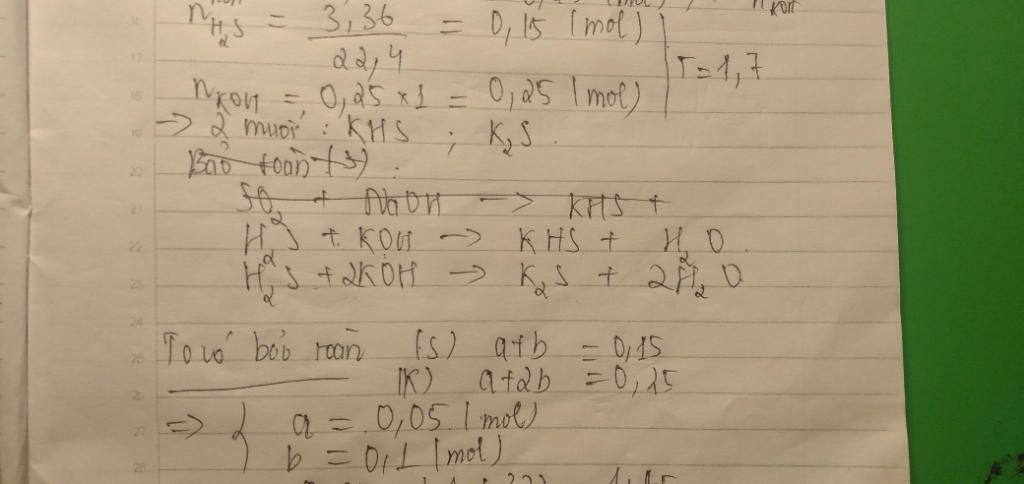 n_H₂S = 3,36 / 22,4 = 0,15 (mol)
T = 1,7
n_KOH = 0,25 × 1 = 0,25 (mol)
→ 2 muối : KHS ; K₂S
Bảo toàn (S) :
SO₂ + NaOH → KHS +
H₂S + KOH → KHS + H₂O
H₂S + 2KOH → K₂S + 2H₂O
Ta có bảo toàn (S) a+b = 0,15
(K) a+2b = 0,25
⇒ { a = 0,05 (mol)
b = 0,1 (mol)